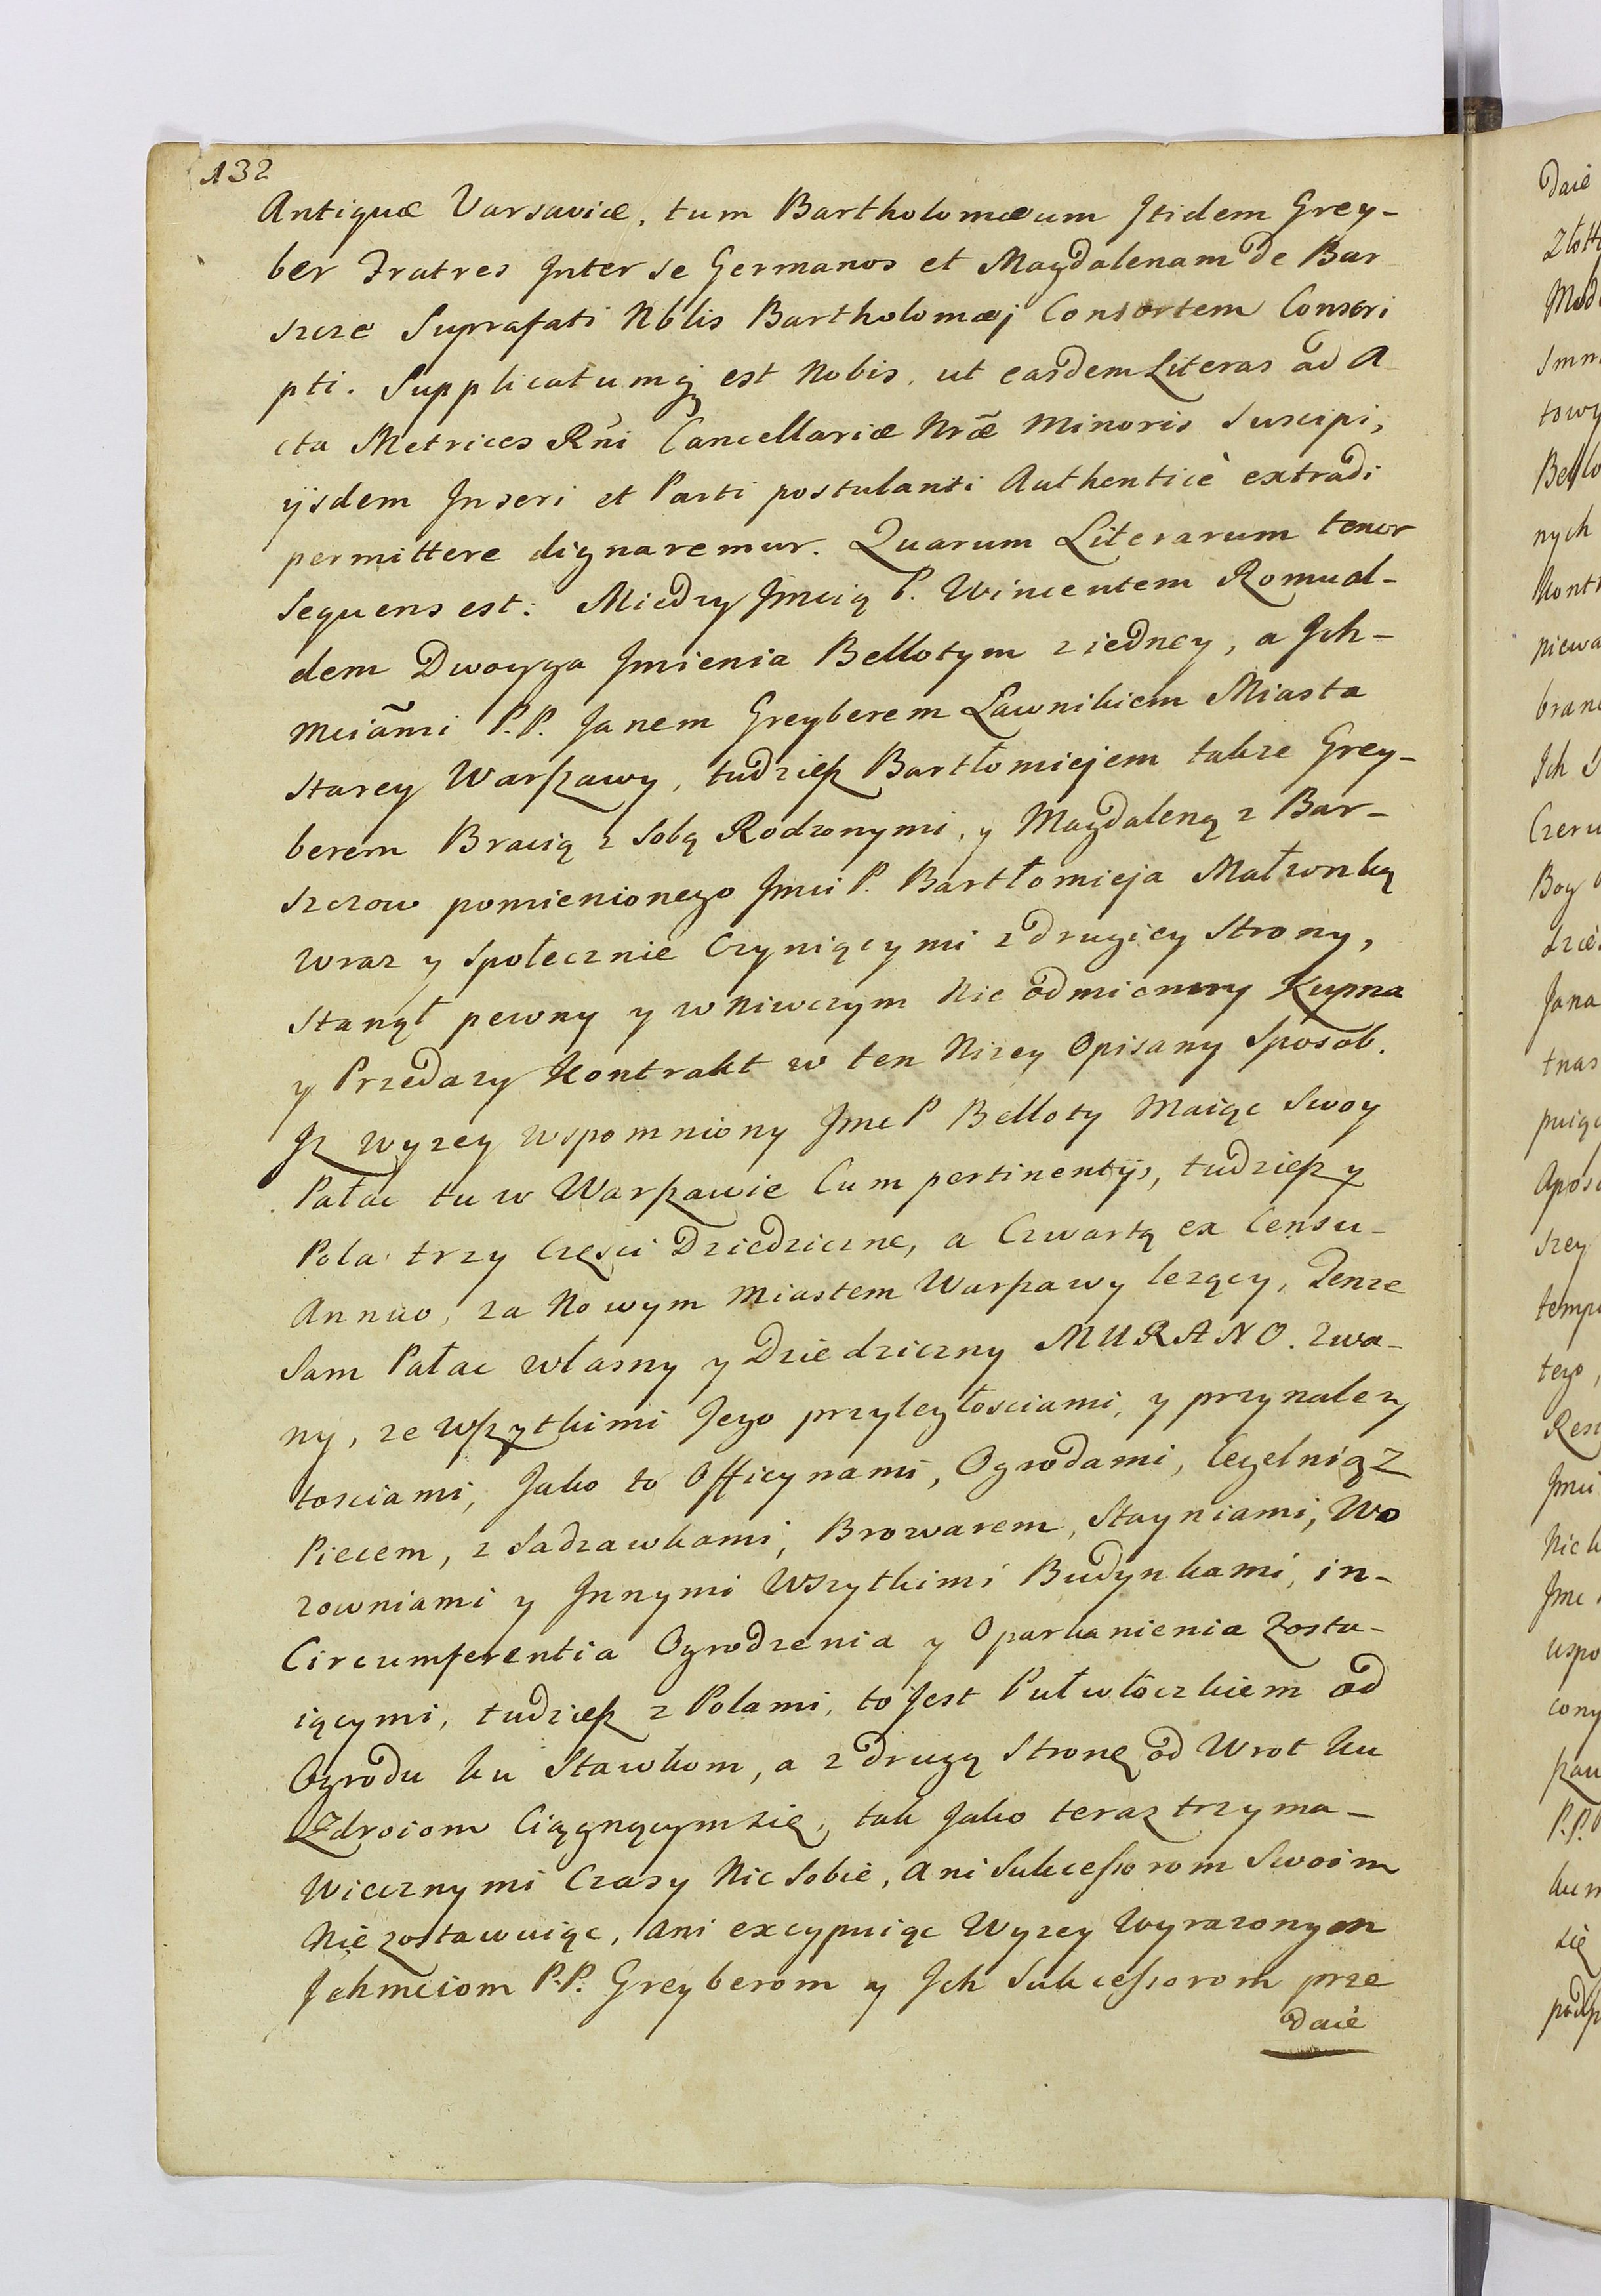 132
Antiquæ Varsaviæ, tum Bartholomæum Itidem Grey-
ber Fratres Inter se Germanos et Magdalenam de Bar
szcze Suprafati Nblis Bartholomæj Consortem Conscri
pti. Supplicatumq; est Nobis, ut easdem Literas ad A
cta Metrices Rñi Cancellariæ Nræ Minoris Suscipi,
ijsdem Inseri et Parti postulanti Authenticè extradi
permittere dignaremur. Quarum Literarum tenor
Sequens est: Miedzy Jmcią P. Wincentem Romual-
dem Dwoyga Jmienia Bellotym z iedney, a Ich-
mciāmi P.P. Janem Greyberem Ławnikiem Miasta
Starey Warszawy, tudziesz Bartłomiejem takze Grey-
berem Bracią z Sobą Rodzonymi, y Magdaleną z Bar-
szczow pomienionego Jmci P. Bartłomieja Małzonką
wraz y społecznie Czyniącymi z drugiey Strony,
Stanął pewny y w Niwczym Nie odmienny Kupna
y Przedazy Kontrakt w ten Nizey Opisany Sposob.
Jz wyzey wspomniony Jmc P Belloty Maiąc Swoy
Pałac tu w Warszawie Cum pertinentijs, tudziesz y
Pola trzy Częsci Dziedziczne, a Czwartą ex Censu-
Annuo, za Nowym Miastem Warszawy lezący, Tenze
Sam Pałac własny y Dziedziczny MURANO. Zwa-
ny, ze Wszytkimi Jego przyległosciami, y przynalezy
tosciami, Jako to Officynami, Ogrodami, Cegelnią z
Piecem, z Sadzawkami, Browarem, Stayniami, Wo
zowniami y Innymi Wszytkimi Budynkami, in-
Circumferentia Ogrodzenia y Oparkanienia Zosta-
iącymi, tudziesz z Polami, to Jest Pułwłoczkiem od
Ogrodu ku Stawkom, a z drugą Stronę od Wrot ku
Zdroiom Ciągnącym się, tak Jako teraz trzyma-
Wiecznymi Czasy Nic Sobie, ani Sukcessorom Swoim
Nie zostawuiąc, ani excypuiąc Wyzey Wyrazonym
Ichmciom P.P. Greyberom y Ich Sukcessorom prze
daie